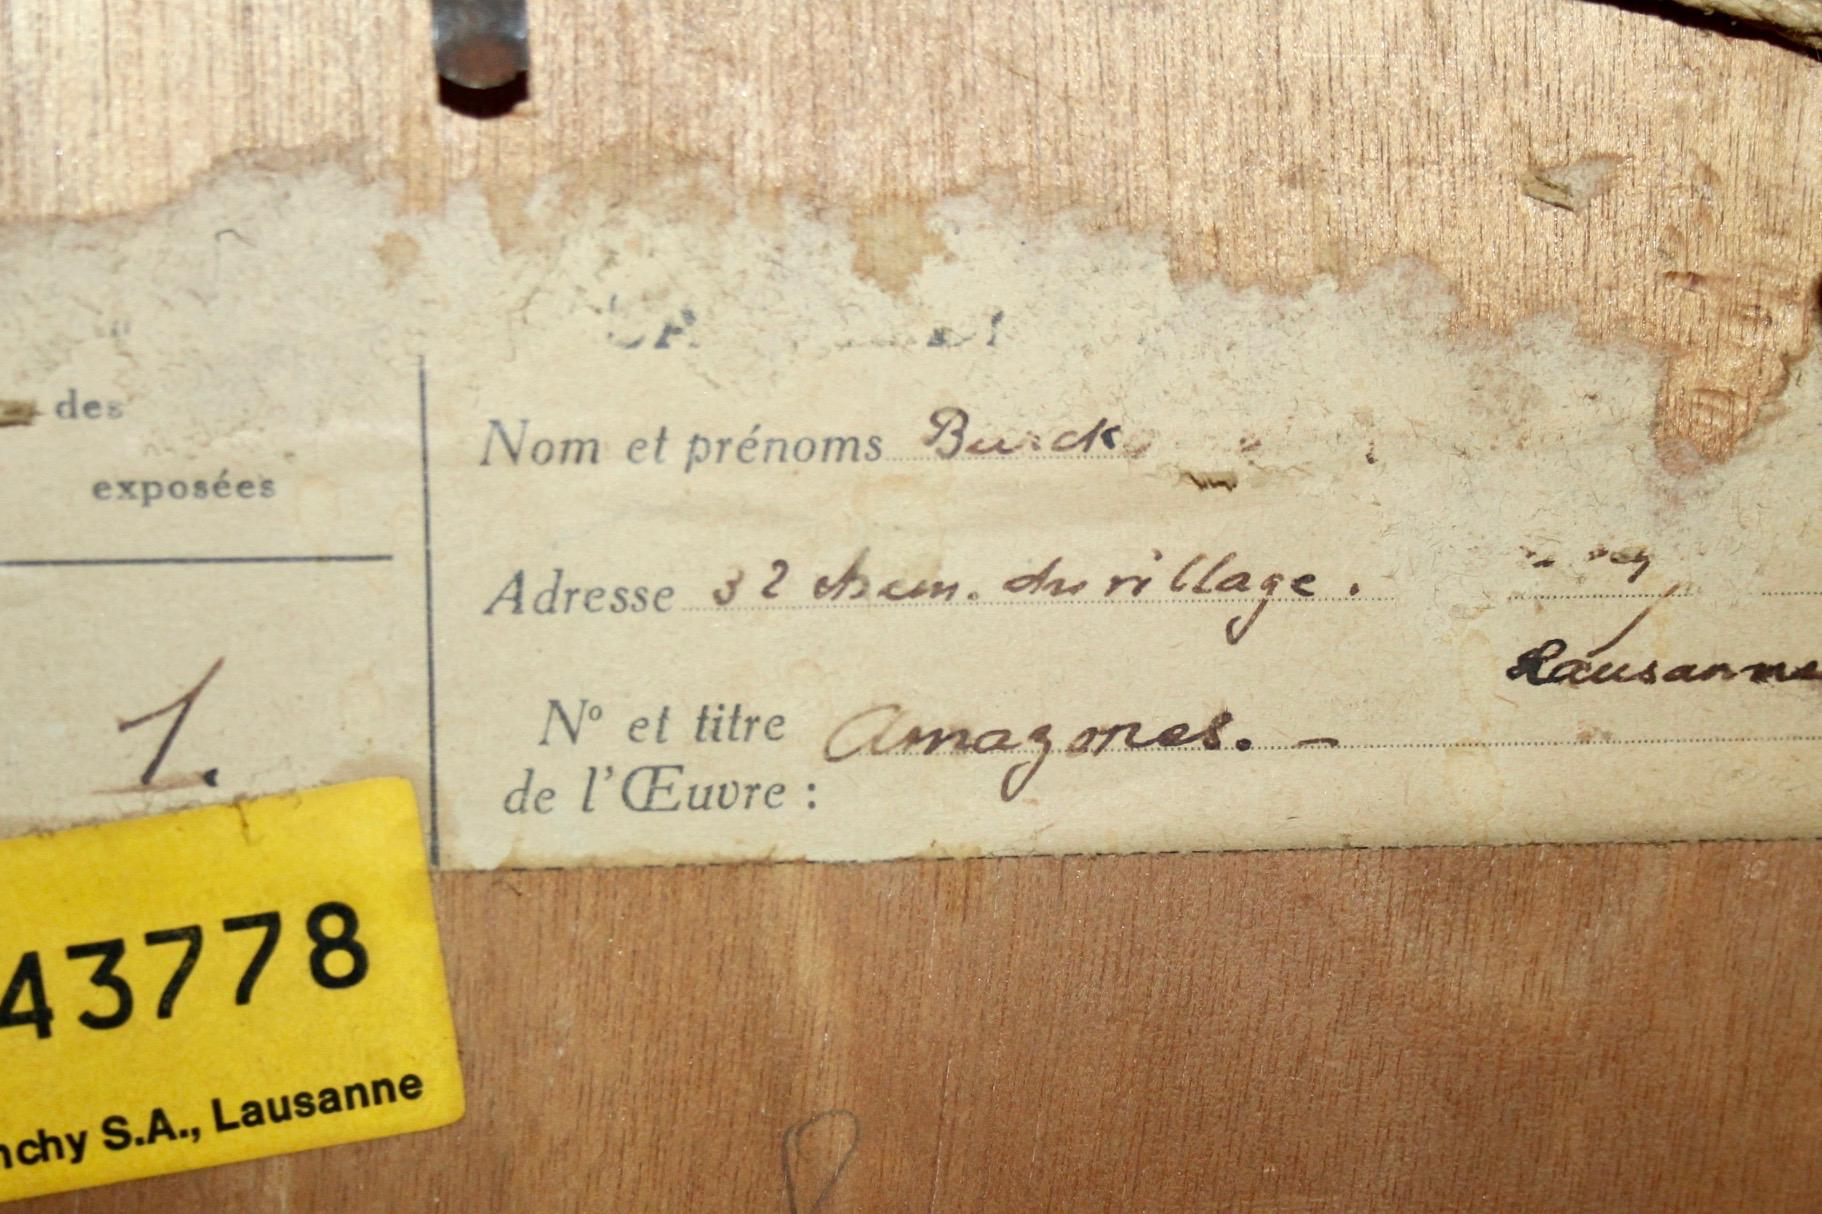 des
exposées
1.
Nom et prénoms Burck
Adresse 32 chem. du village.
Lausanne
No et titre Amazones. -
de l'Œuvre :
43778
nchy S.A., Lausanne